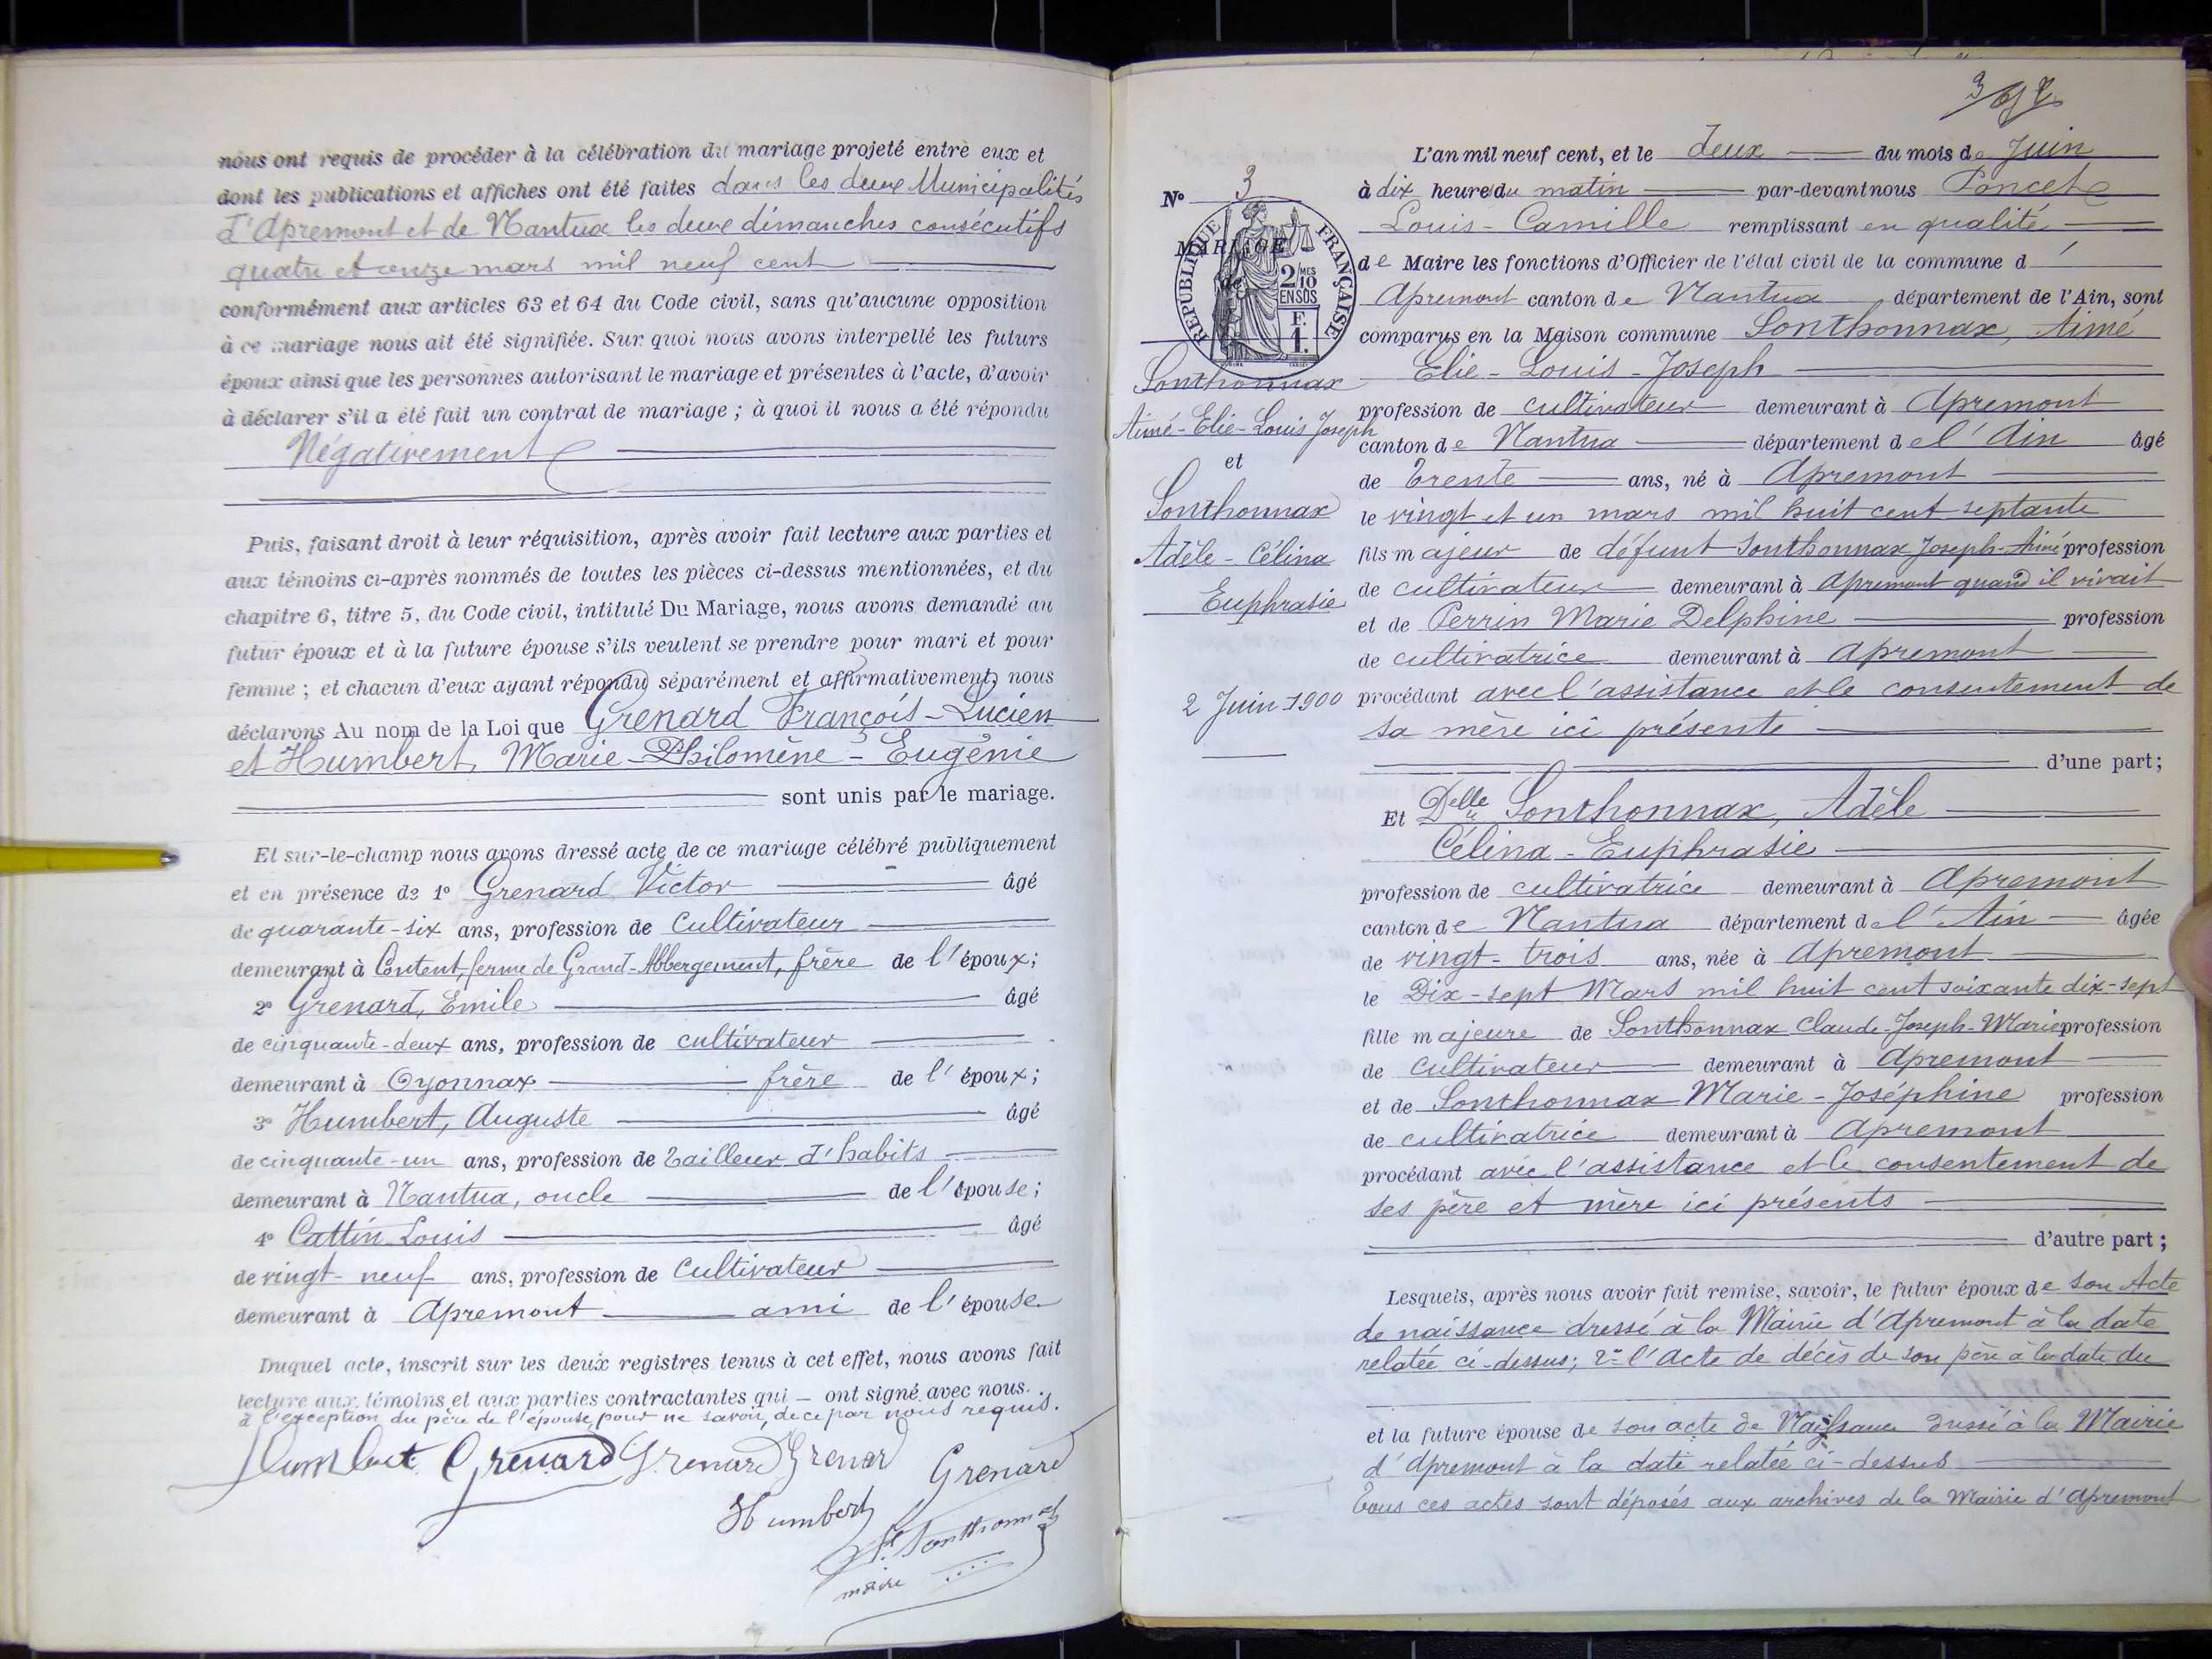 nous ont requis de procéder à la célébration du mariage projeté entre eux et
dont les publications et affiches ont été faites dans les deux Municipalités
d'Apremont et de Nantua les deux dimanches consécutifs
quatre et onze mars mil neuf cent
conformément aux articles 63 et 64 du Code civil, sans qu'aucune opposition
à ce mariage nous ait été signifiée. Sur quoi nous avons interpellé les futurs
époux ainsi que les personnes autorisant le mariage et présentes à l'acte, d'avoir
à déclarer s'il a été fait un contrat de mariage ; à quoi il nous a été répondu
Négativement
Puis, faisant droit à leur réquisition, après avoir fait lecture aux parties et
aux témoins ci-après nommés de toutes les pièces ci-dessus mentionnées, et du
chapitre 6, titre 5, du Code civil, intitulé Du Mariage, nous avons demandé au
futur époux et à la future épouse s'ils veulent se prendre pour mari et pour
femme ; et chacun d'eux ayant répondu séparément et affirmativement, nous
déclarons Au nom de la Loi que Grenard François-Lucien
et Humbert, Marie-Philomène-Eugénie
sont unis par le mariage.
Et sur-le-champ nous avons dressé acte de ce mariage célébré publiquement
et en présence de 1° Grenard Victor âgé
de quarante-six ans, profession de cultivateur
demeurant à Content, ferme de Grand-Abbergement, frère de l'époux ;
2° Grenard, Emile âgé
de cinquante-deux ans, profession de cultivateur
demeurant à Oyonnax frère de l'époux ;
3° Humbert, Auguste âgé
de cinquante-un ans, profession de tailleur d'habits
demeurant à Nantua, oncle de l'épouse ;
4° Cattin Louis âgé
de vingt-neuf ans, profession de cultivateur
demeurant à Apremont ami de l'épouse
Duquel acte, inscrit sur les deux registres tenus à cet effet, nous avons fait
lecture aux témoins et aux parties contractantes qui — ont signé avec nous.
à l'exception du père de l'épouse, pour ne savoir, de ce par nous requis.
Humbert Grenard Grenard Grenard
Grenard
Humbert
Sonthonnax
maire
L'an mil neuf cent, et le deux du mois de Juin
à dix heure du matin par-devant nous Poncet
Louis-Camille remplissant en qualité
de Maire les fonctions d'Officier de l'état civil de la commune d'
Apremont canton de Nantua département de l'Ain, sont
comparus en la Maison commune Sonthonnax, Aimé
Elie-Louis-Joseph
profession de cultivateur demeurant à Apremont
canton de Nantua département de l'Ain âgé
de trente ans, né à Apremont
le vingt et un mars mil huit cent septante
fils majeur de défunt Sonthonnax Joseph-Aimé profession
de cultivateur demeurant à Apremont quand il vivait
et de Perrin Marie Delphine profession
de cultivatrice demeurant à Apremont
procédant avec l'assistance et le consentement de
sa mère ici présente
d'une part ;
Et Delle Sonthonnax, Adèle
Célina-Euphrasie
profession de cultivatrice demeurant à Apremont
canton de Nantua département de l'Ain âgée
de vingt-trois ans, née à Apremont
le Dix-sept Mars mil huit cent soixante dix-sept
fille majeure de Sonthonnax Claude-Joseph-Marie profession
de cultivateur demeurant à Apremont
et de Sonthonnax Marie-Joséphine profession
de cultivatrice demeurant à Apremont
procédant avec l'assistance et le consentement de
ses père et mère ici présents
d'autre part ;
Lesquels, après nous avoir fait remise, savoir, le futur époux de son Acte
de naissance dressé à la Mairie d'Apremont à la date
relatée ci-dessus ; 2° l'acte de décès de son père à la date du
et la future épouse de son acte de Naissance dressé à la Mairie
d'Apremont à la date relatée ci-dessus
Tous ces actes sont déposés aux archives de la Mairie d'Apremont
N° 3
MARIAGE
de
RÉPUBLIQUE FRANÇAISE
2/10 MES
EN SUS
F.
1.
Sonthonnax
Aimé-Elie-Louis Joseph
et
Sonthonnax
Adèle-Célina
Euphrasie
2 Juin 1900